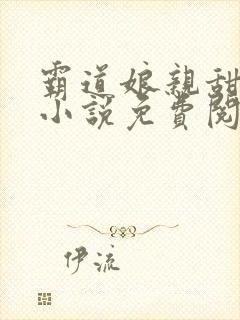 霸道娘親甜
小說免費閱
伊流